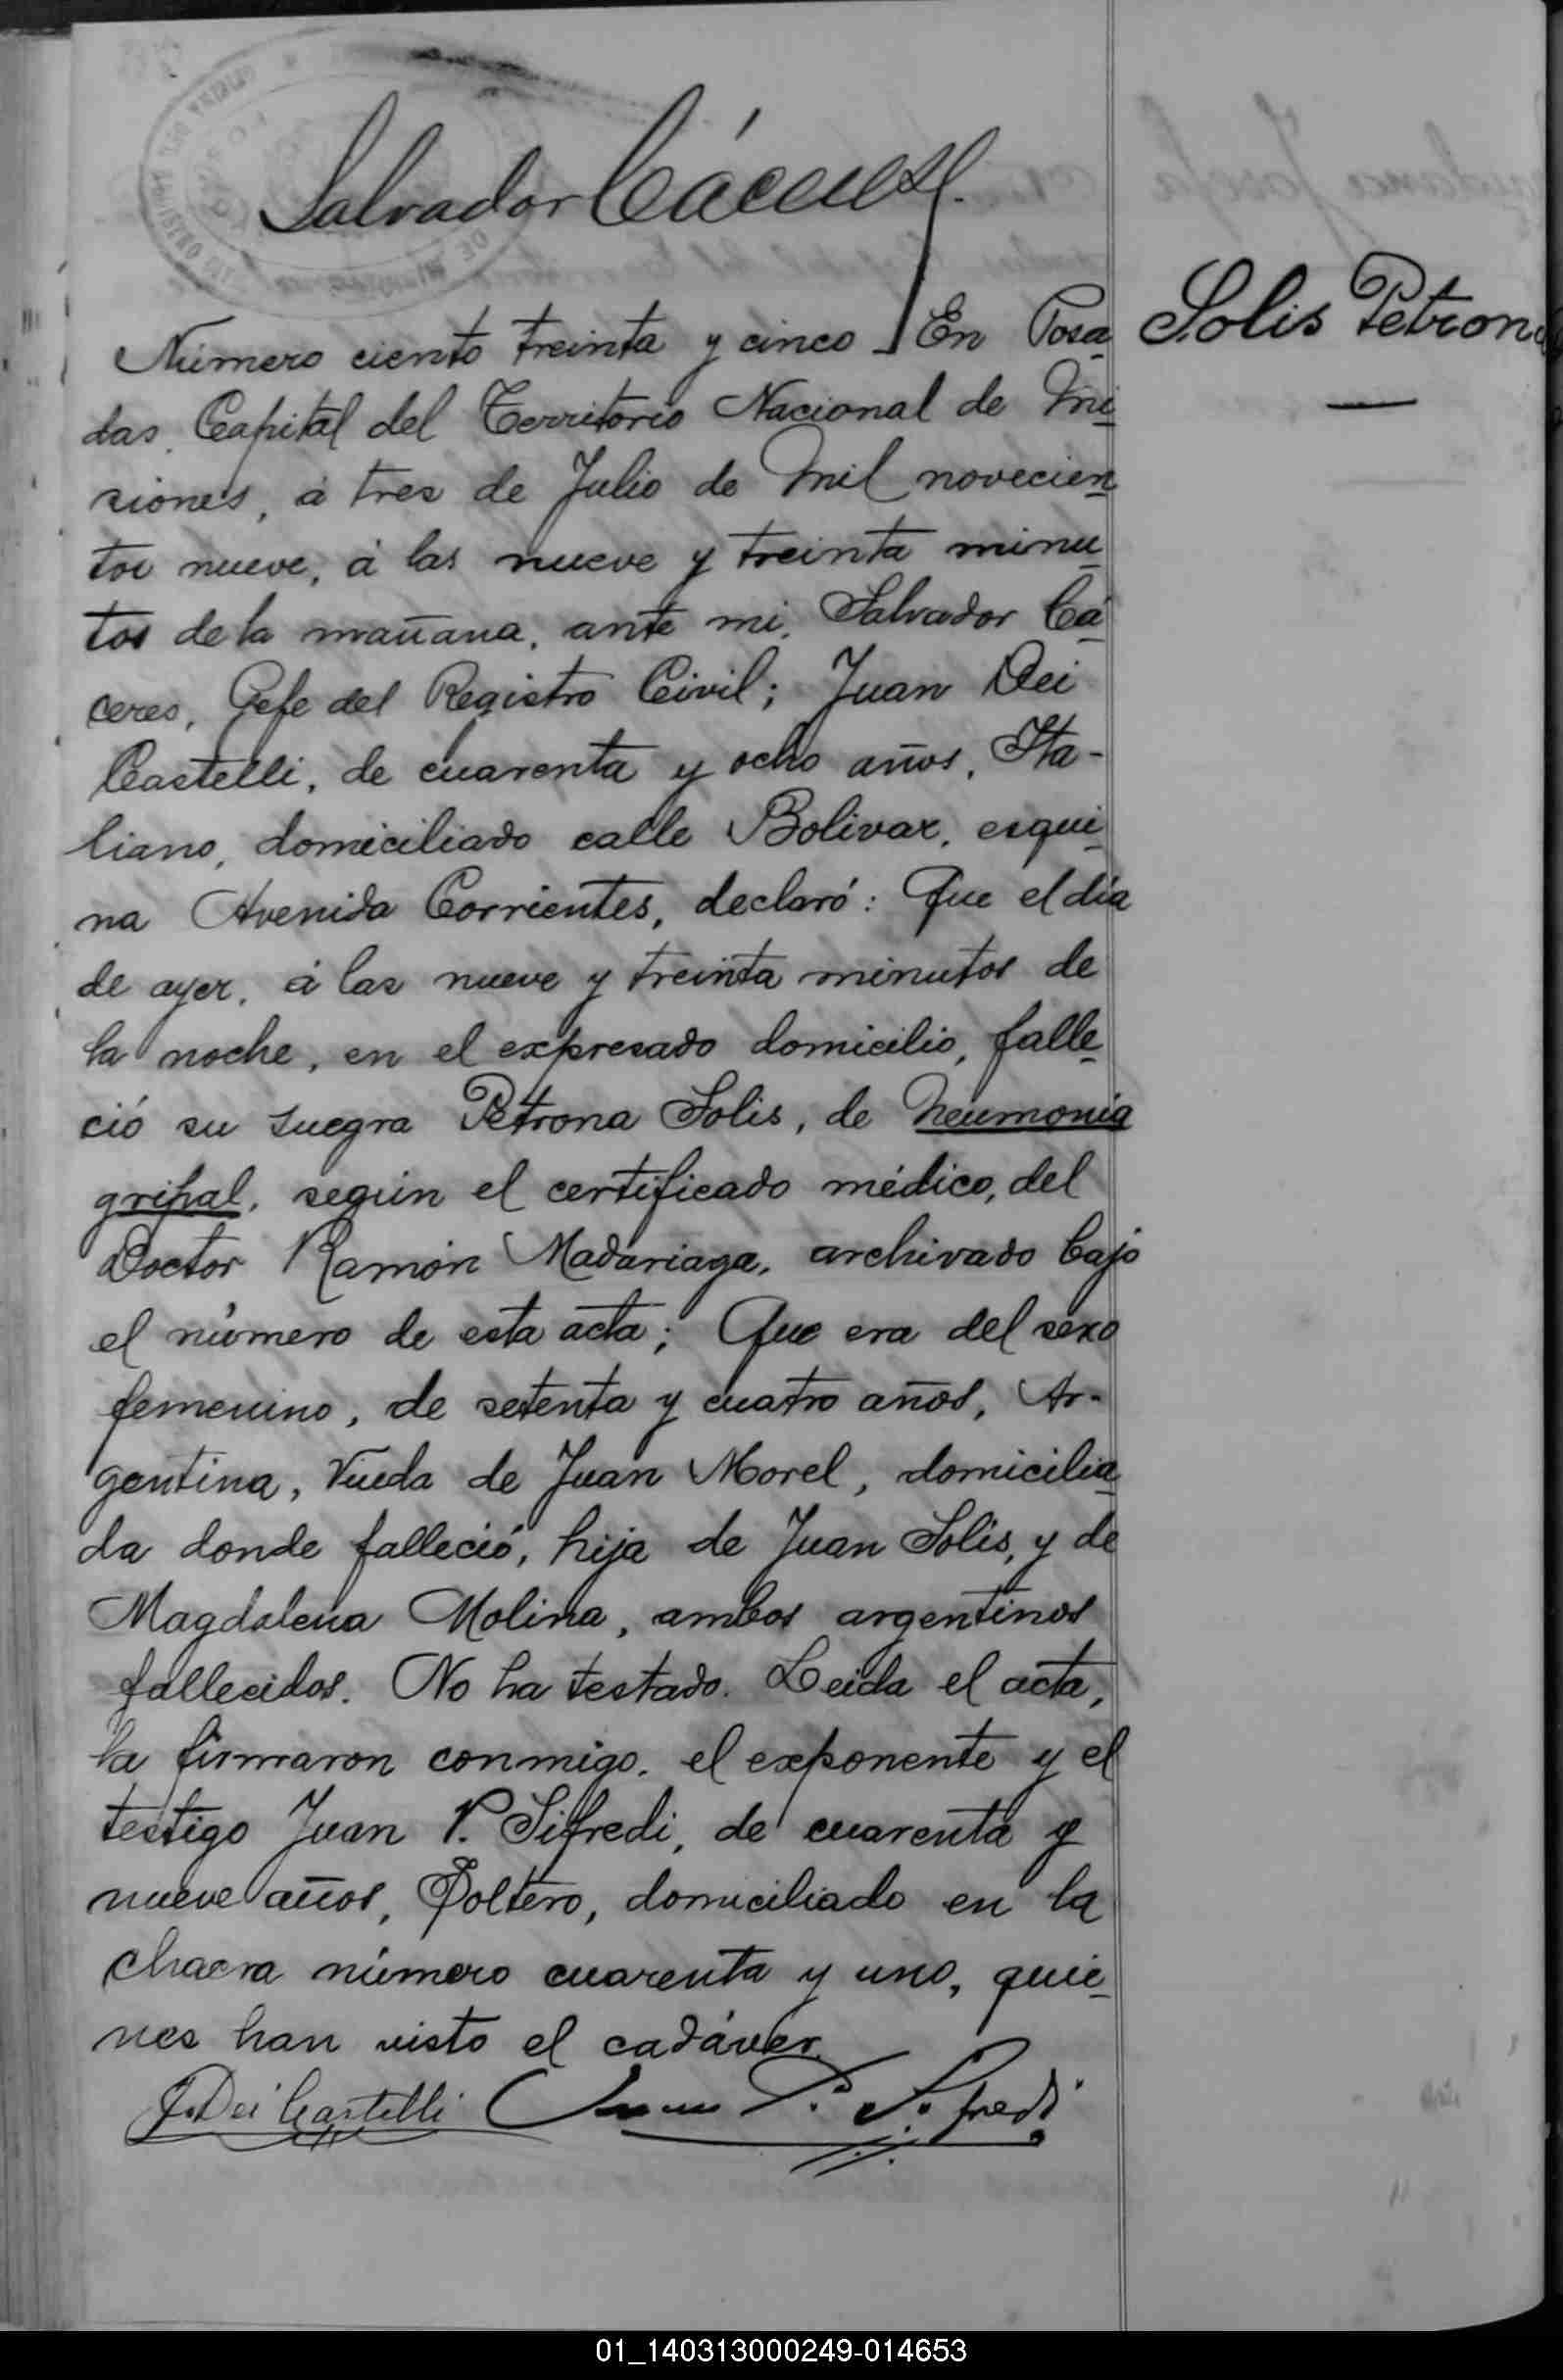 Salvador Cáceres.
Número ciento treinta y cinco En Posa
das, Capital del Territorio Nacional de Mi
siones, á tres de Julio de Mil novecien
tos nueve, á las nueve y treinta minu
tos de la mañana, ante mi, Salvador Cá
ceres, Gefe del Registro Civil; Juan Dei
Castelli, de cuarenta y ocho años, Ita-
liano, domiciliado calle Bolivar, esqui
na Avenida Corrientes, declaró: Que el día
de ayer, á las nueve y treinta minutos de
la noche, en el expresado domicilio, falle
ció su suegra Petrona Solis, de Neumonia
gripal, según el certificado médico, del
Doctor Ramón Madariaga, archivado bajo
el número de esta acta; Que era del sexo
femenino, de setenta y cuatro años, Ar-
gentina, Viuda de Juan Morel, domicilia
da donde falleció, hija de Juan Solis, y de
Magdalena Molina, ambos argentinos
fallecidos. No ha testado. Leida el acta,
la firmaron conmigo, el exponente y el
testigo Juan P. Sifredi, de cuarenta y
nueve años, Soltero, domiciliado en la
chacra número cuarenta y uno, quie
nes han visto el cadáver.
J. Dei Castelli Juan P. Sifredi
Solis Petrona
01_140313000249-014653